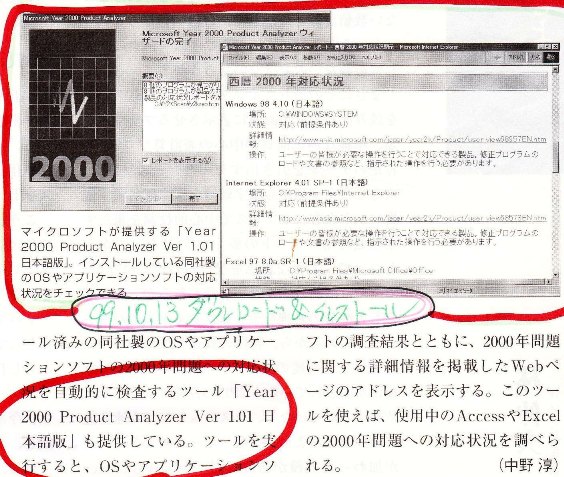 Microsoft Year 2000 Product Analyzer
Microsoft Year 2000 Product Analyzer ウィ
ザードの完了
2000
レポートを表示する(V)
完了
西暦 2000 年対応状況
Windows 98 4.10 (日本語)
場所: C:¥WINDOWS¥SYSTEM
状態: 対応(前提条件あり)
詳細情
報:
操作: ユーザーの皆様が必要な操作を行うことで対応できる製品。修正プログラムの
ロードや文書の参照など、指示された操作を行う必要があります。
Internet Explorer 4.01 SP-1 (日本語)
場所: C:¥Program Files¥Internet Explorer
状態: 対応(前提条件あり)
詳細情
報:
操作: ユーザーの皆様が必要な操作を行うことで対応できる製品。修正プログラムの
ロードや文書の参照など、指示された操作を行う必要があります。
Excel 97 8.0a SR-1 (日本語)
場所: C:¥Program Files¥Microsoft Office¥Office
マイクロソフトが提供する「Year
2000 Product Analyzer Ver 1.01
日本語版」。インストールしている同社製
のOSやアプリケーションソフトの対応
状況をチェックできる
99.10.13 ダウンロード&インストール
ール済みの同社製のOSやアプリケー
ションソフトの2000年問題への対応状
況を自動的に検査するツール「Year
2000 Product Analyzer Ver 1.01 日
本語版」も提供している。ツールを実
行すると、OSやアプリケーションソ
フトの調査結果とともに、2000年問題
に関する詳細情報を掲載したWebペ
ージのアドレスを表示する。このツー
ルを使えば、使用中のAccessやExcel
の2000年問題への対応状況を調べら
れる。 (中野 淳)